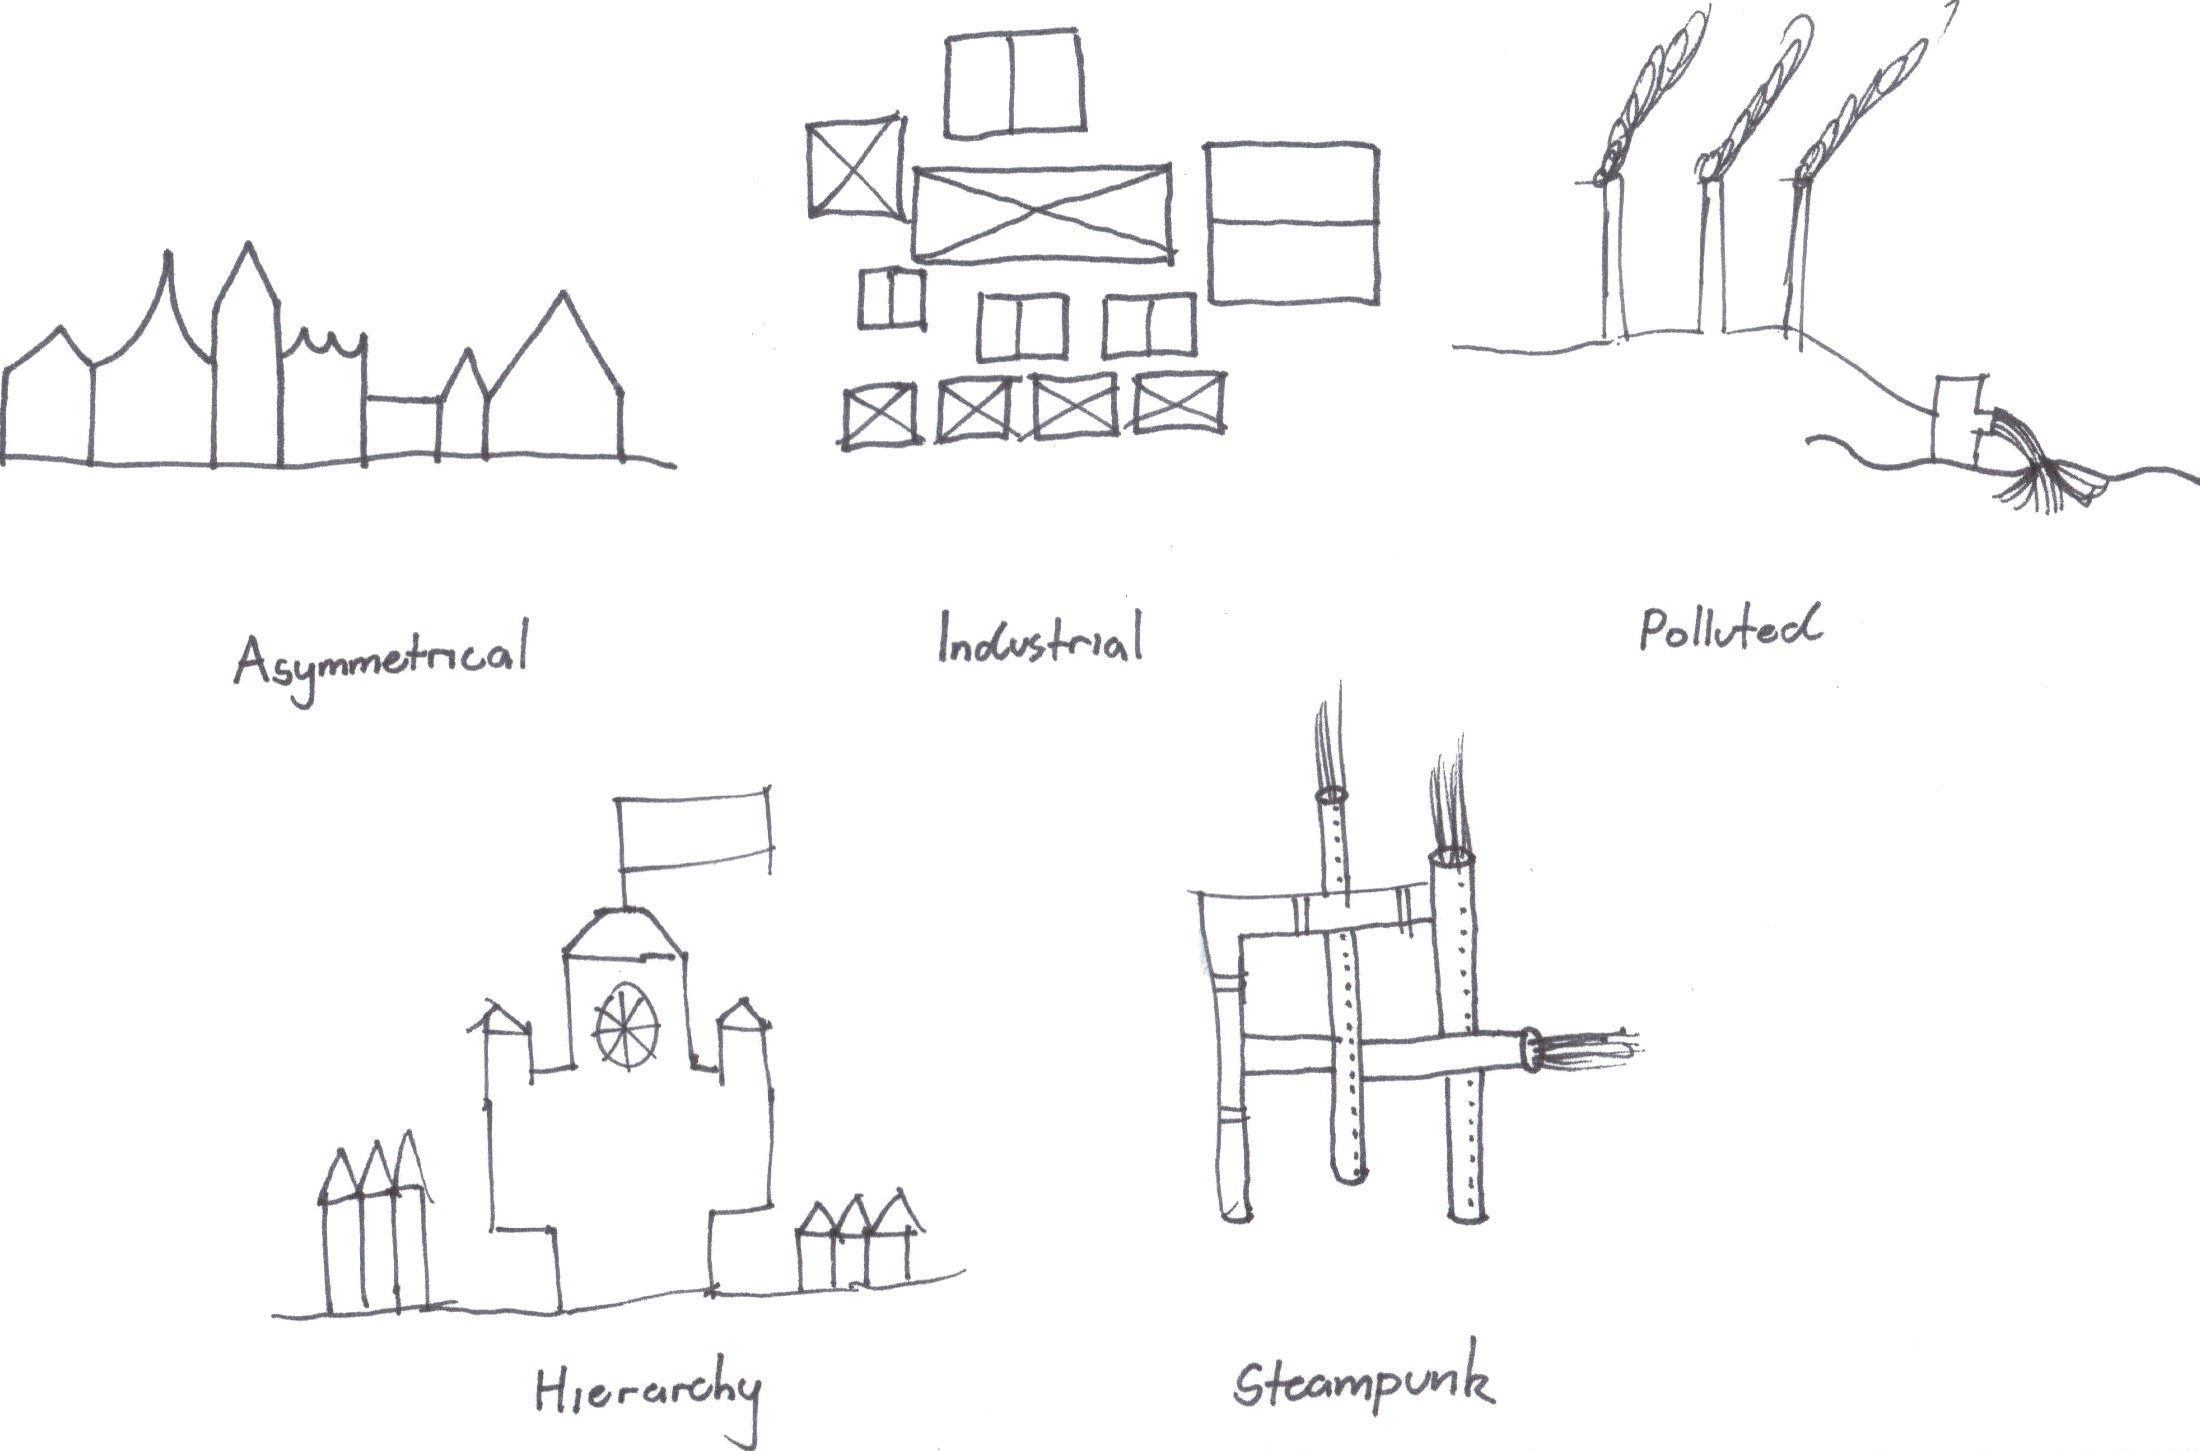 Asymmetrical
Industrial
Polluted
Hierarchy
Steampunk